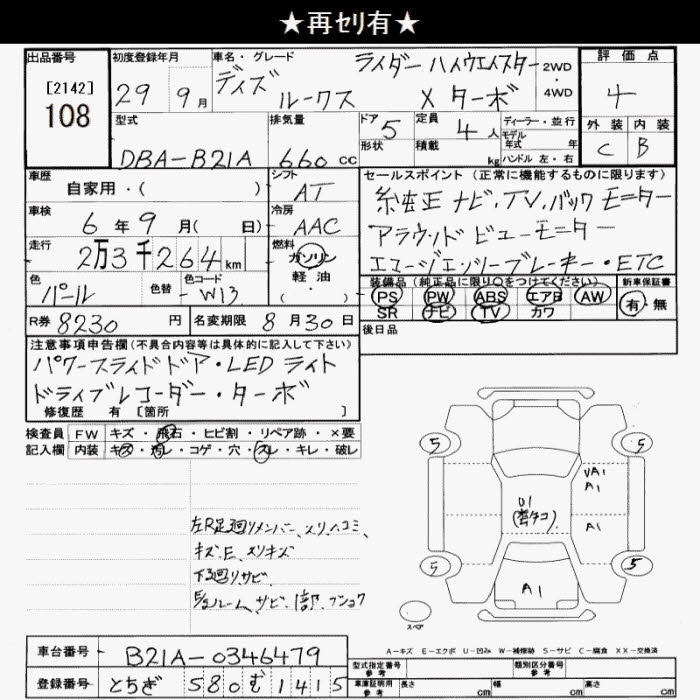 ★再セリ有★
出品番号 初度登録年月 車名・グレード 評価点
[2142]
108
29 9月 デイズ ルークス ライダー ハイウエイスター X ターボ 2WD・4WD 4
型式 排気量 ドア 定員 ディーラー・並行 外装 内装
DBA-B21A 660cc 5 4人 モデル年式 年 C B
形状 積載 kg ハンドル 左・右
車歴 シフト セールスポイント(正常に機能するものに限ります)
自家用・( ) AT 純正 ナビ・TV・バックモニター
車検 冷房 アラウンドビューモニター
6年9月( 日) AAC エマージェンシーブレーキ・ETC
走行 2万3千264km 燃料 ガソリン 軽・油 ( )
装備品(純正品に限り○をつけてください) 新車保証書
PS PW ABS エアB AW 有・無
SR ナビ TV カワ
色 パール 色替 色コード W13
後日品
R券 8230円 名変期限 8月30日
注意事項申告欄(不具合内容等は具体的に記入して下さい)
パワースライドドア・LEDライト
ドライブレコーダー・ターボ
修復歴 有 [箇所 ]
検査員 FW キズ・飛石・ヒビ割・リペア跡・×要
記入欄 内装 キズ・汚レ・コゲ・穴・スレ・キレ・破レ
5 5
UA1
A1
U1
A1
左R足廻リメンバー、スリ、ヘコミ、
キズE、スリキズ
下廻リサビ
サビ
5 5
A1
スペア
A-キズ E-エクボ U-凹み W-補修跡 S-サビ C-腐食 XX-交換済
車台番号 B21A-0346479
登録番号 とちぎ 580 む 1415
型式指定番号 参考 類別区分番号 参考
車庫証明用 参考 長さ cm 幅 cm 高さ cm